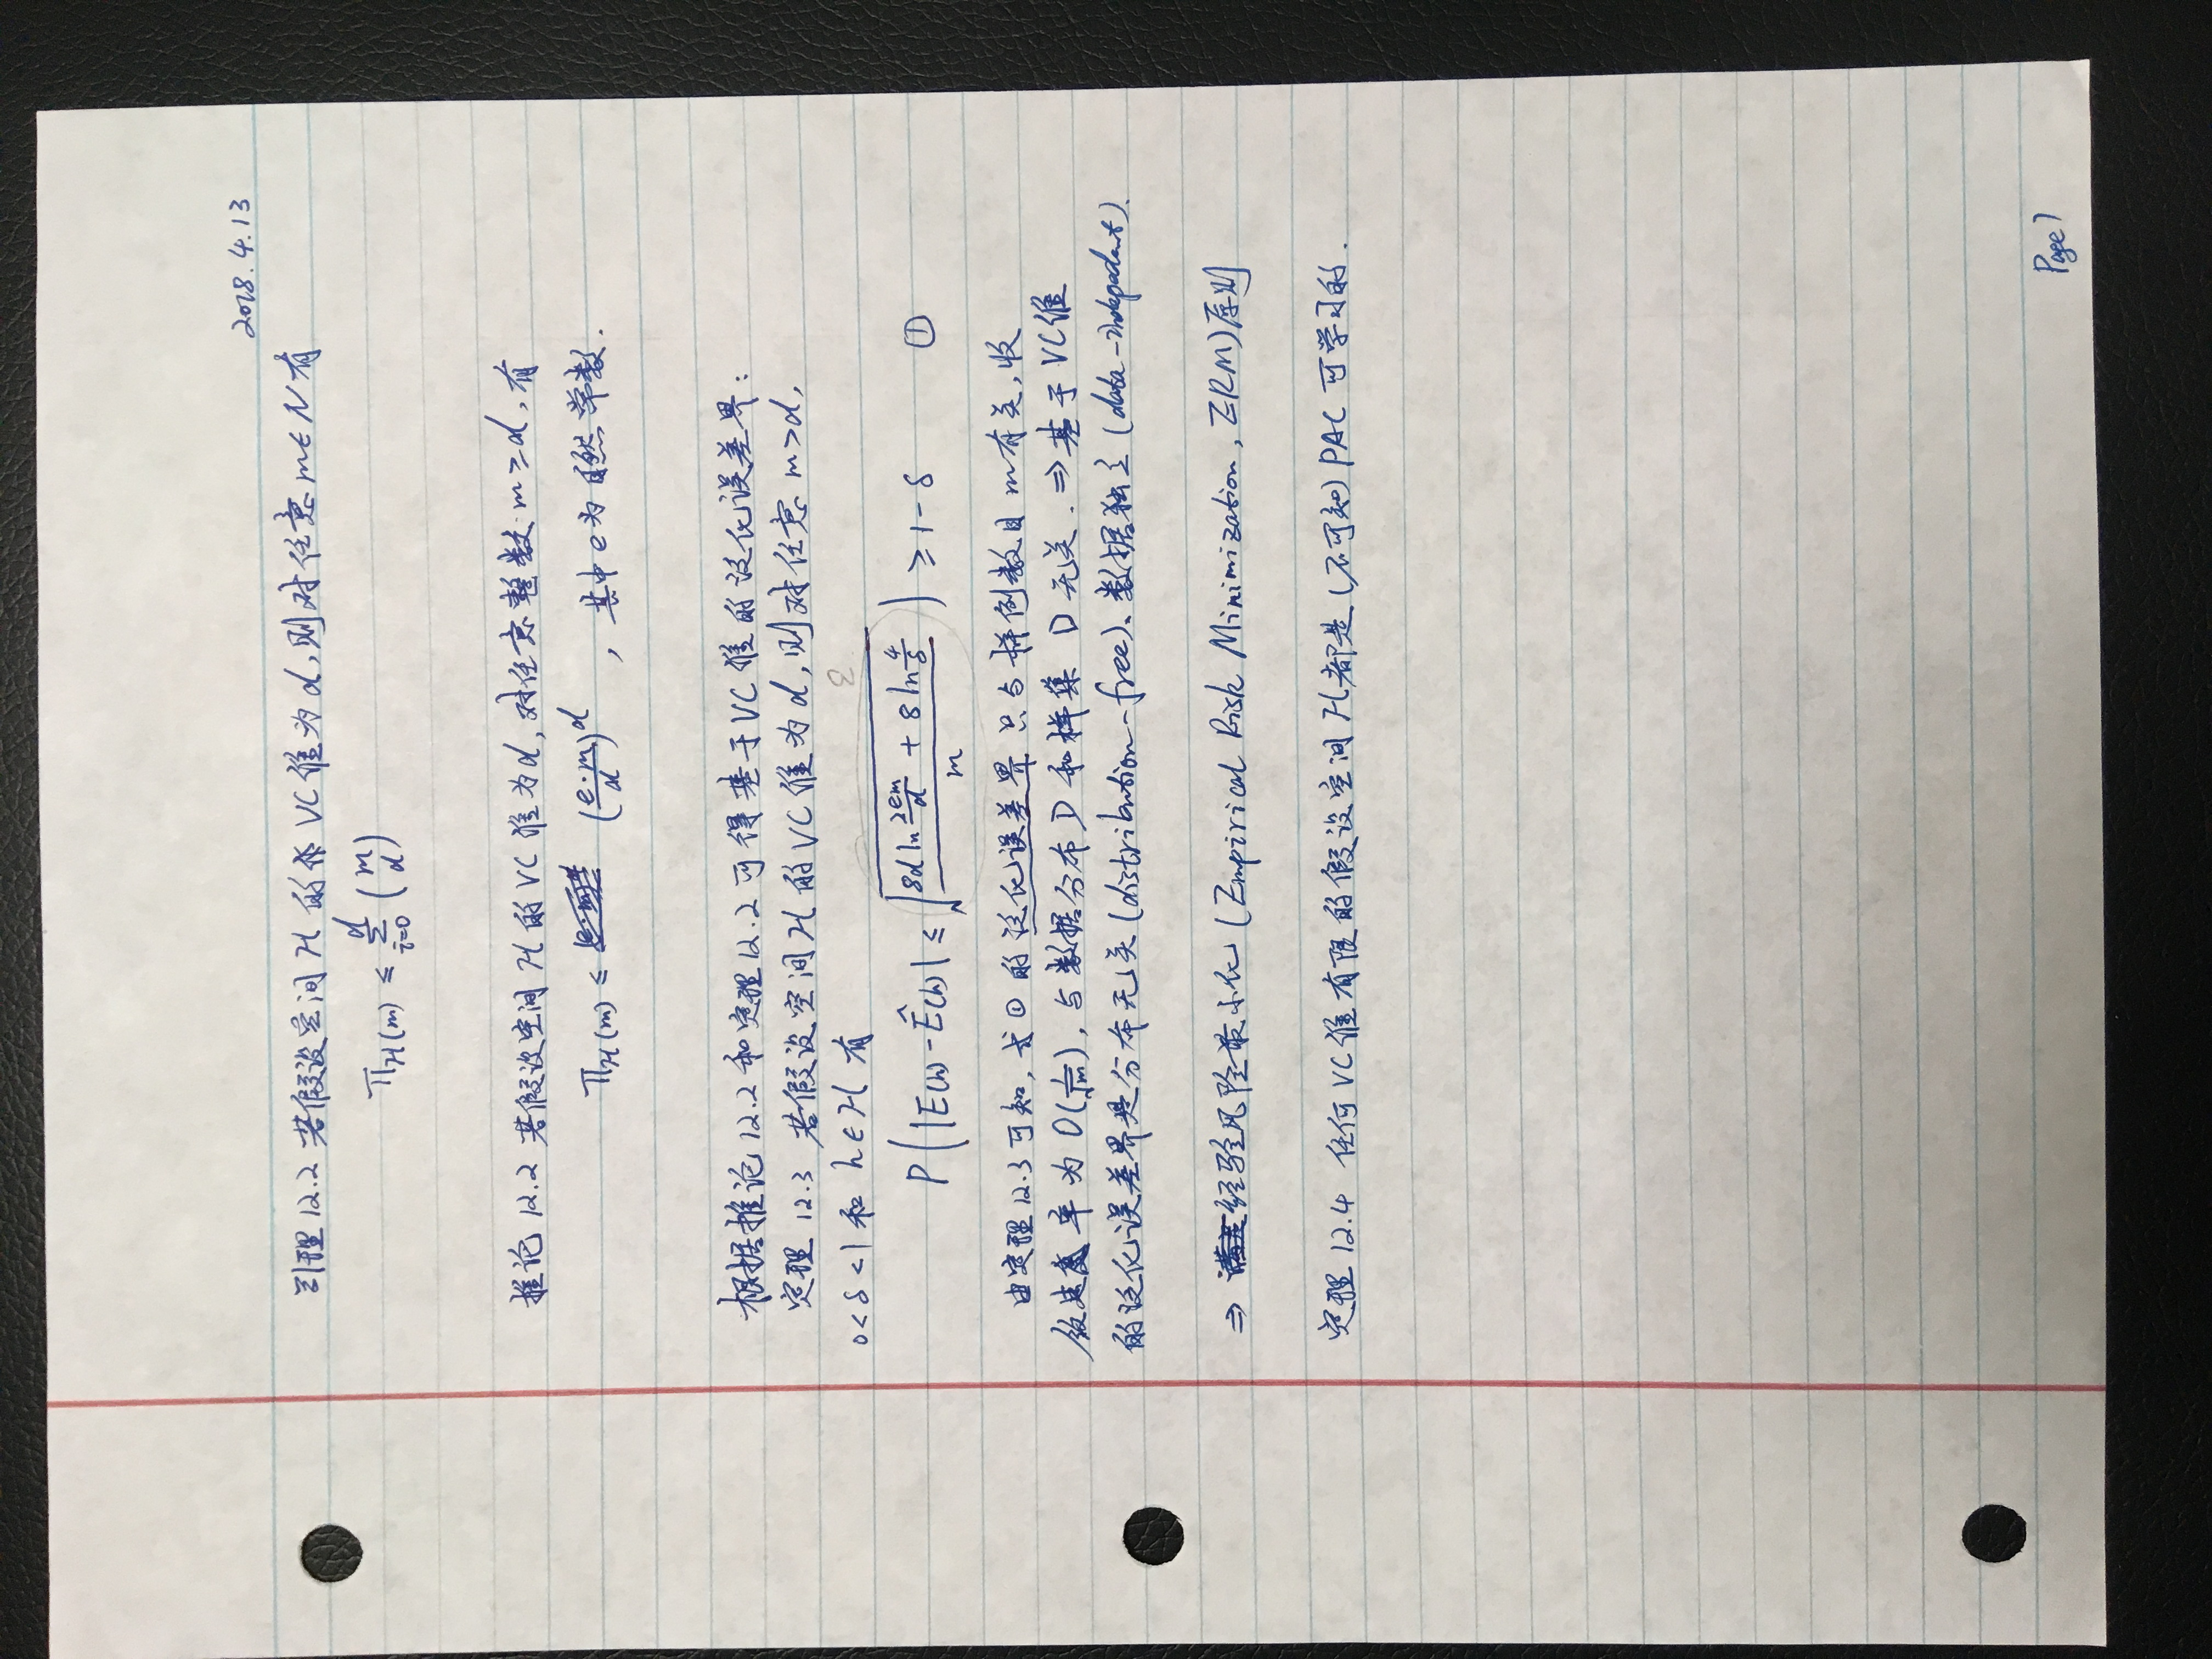 2018.4.13
引理12.2 若假设空间 H 的 VC 维为 d, 则对任意 m∈N 有
Π_H(m) ≤ Σ_{i=0}^{d} (m d)
推论 12.2 若假设空间 H 的 VC 维为 d, 对任意整数 m≥d, 有
Π_H(m) ≤ (e·m/d)^d , 其中 e 为自然常数.
根据推论12.2 和定理12.2 可得基于VC 维的泛化误差界:
定理 12.3 若假设空间 H 的 VC 维为 d, 则对任意 m>d,
0<δ<1 和 h∈H 有
ε
P( |E(h) - Ê(h)| ≤ √((8d ln(2em/d) + 8 ln(4/δ))/m) ) ≥ 1-δ ①
由定理12.3可知, 式① 的泛化误差界只与样例数目 m 有关, 收
敛速率为 O(1/√m), 与数据分布 D 和样集 D 无关. ⇒ 基于 VC 维
的泛化误差界是分布无关 (distribution-free)、数据独立 (data-indepedent).
⇒ 经验风险最小化 (Empirical Risk Minimization, ERM) 原则
定理 12.4 任何 VC 维有限的假设空间 H 都是 (不可知) PAC 可学习的.
Page 7